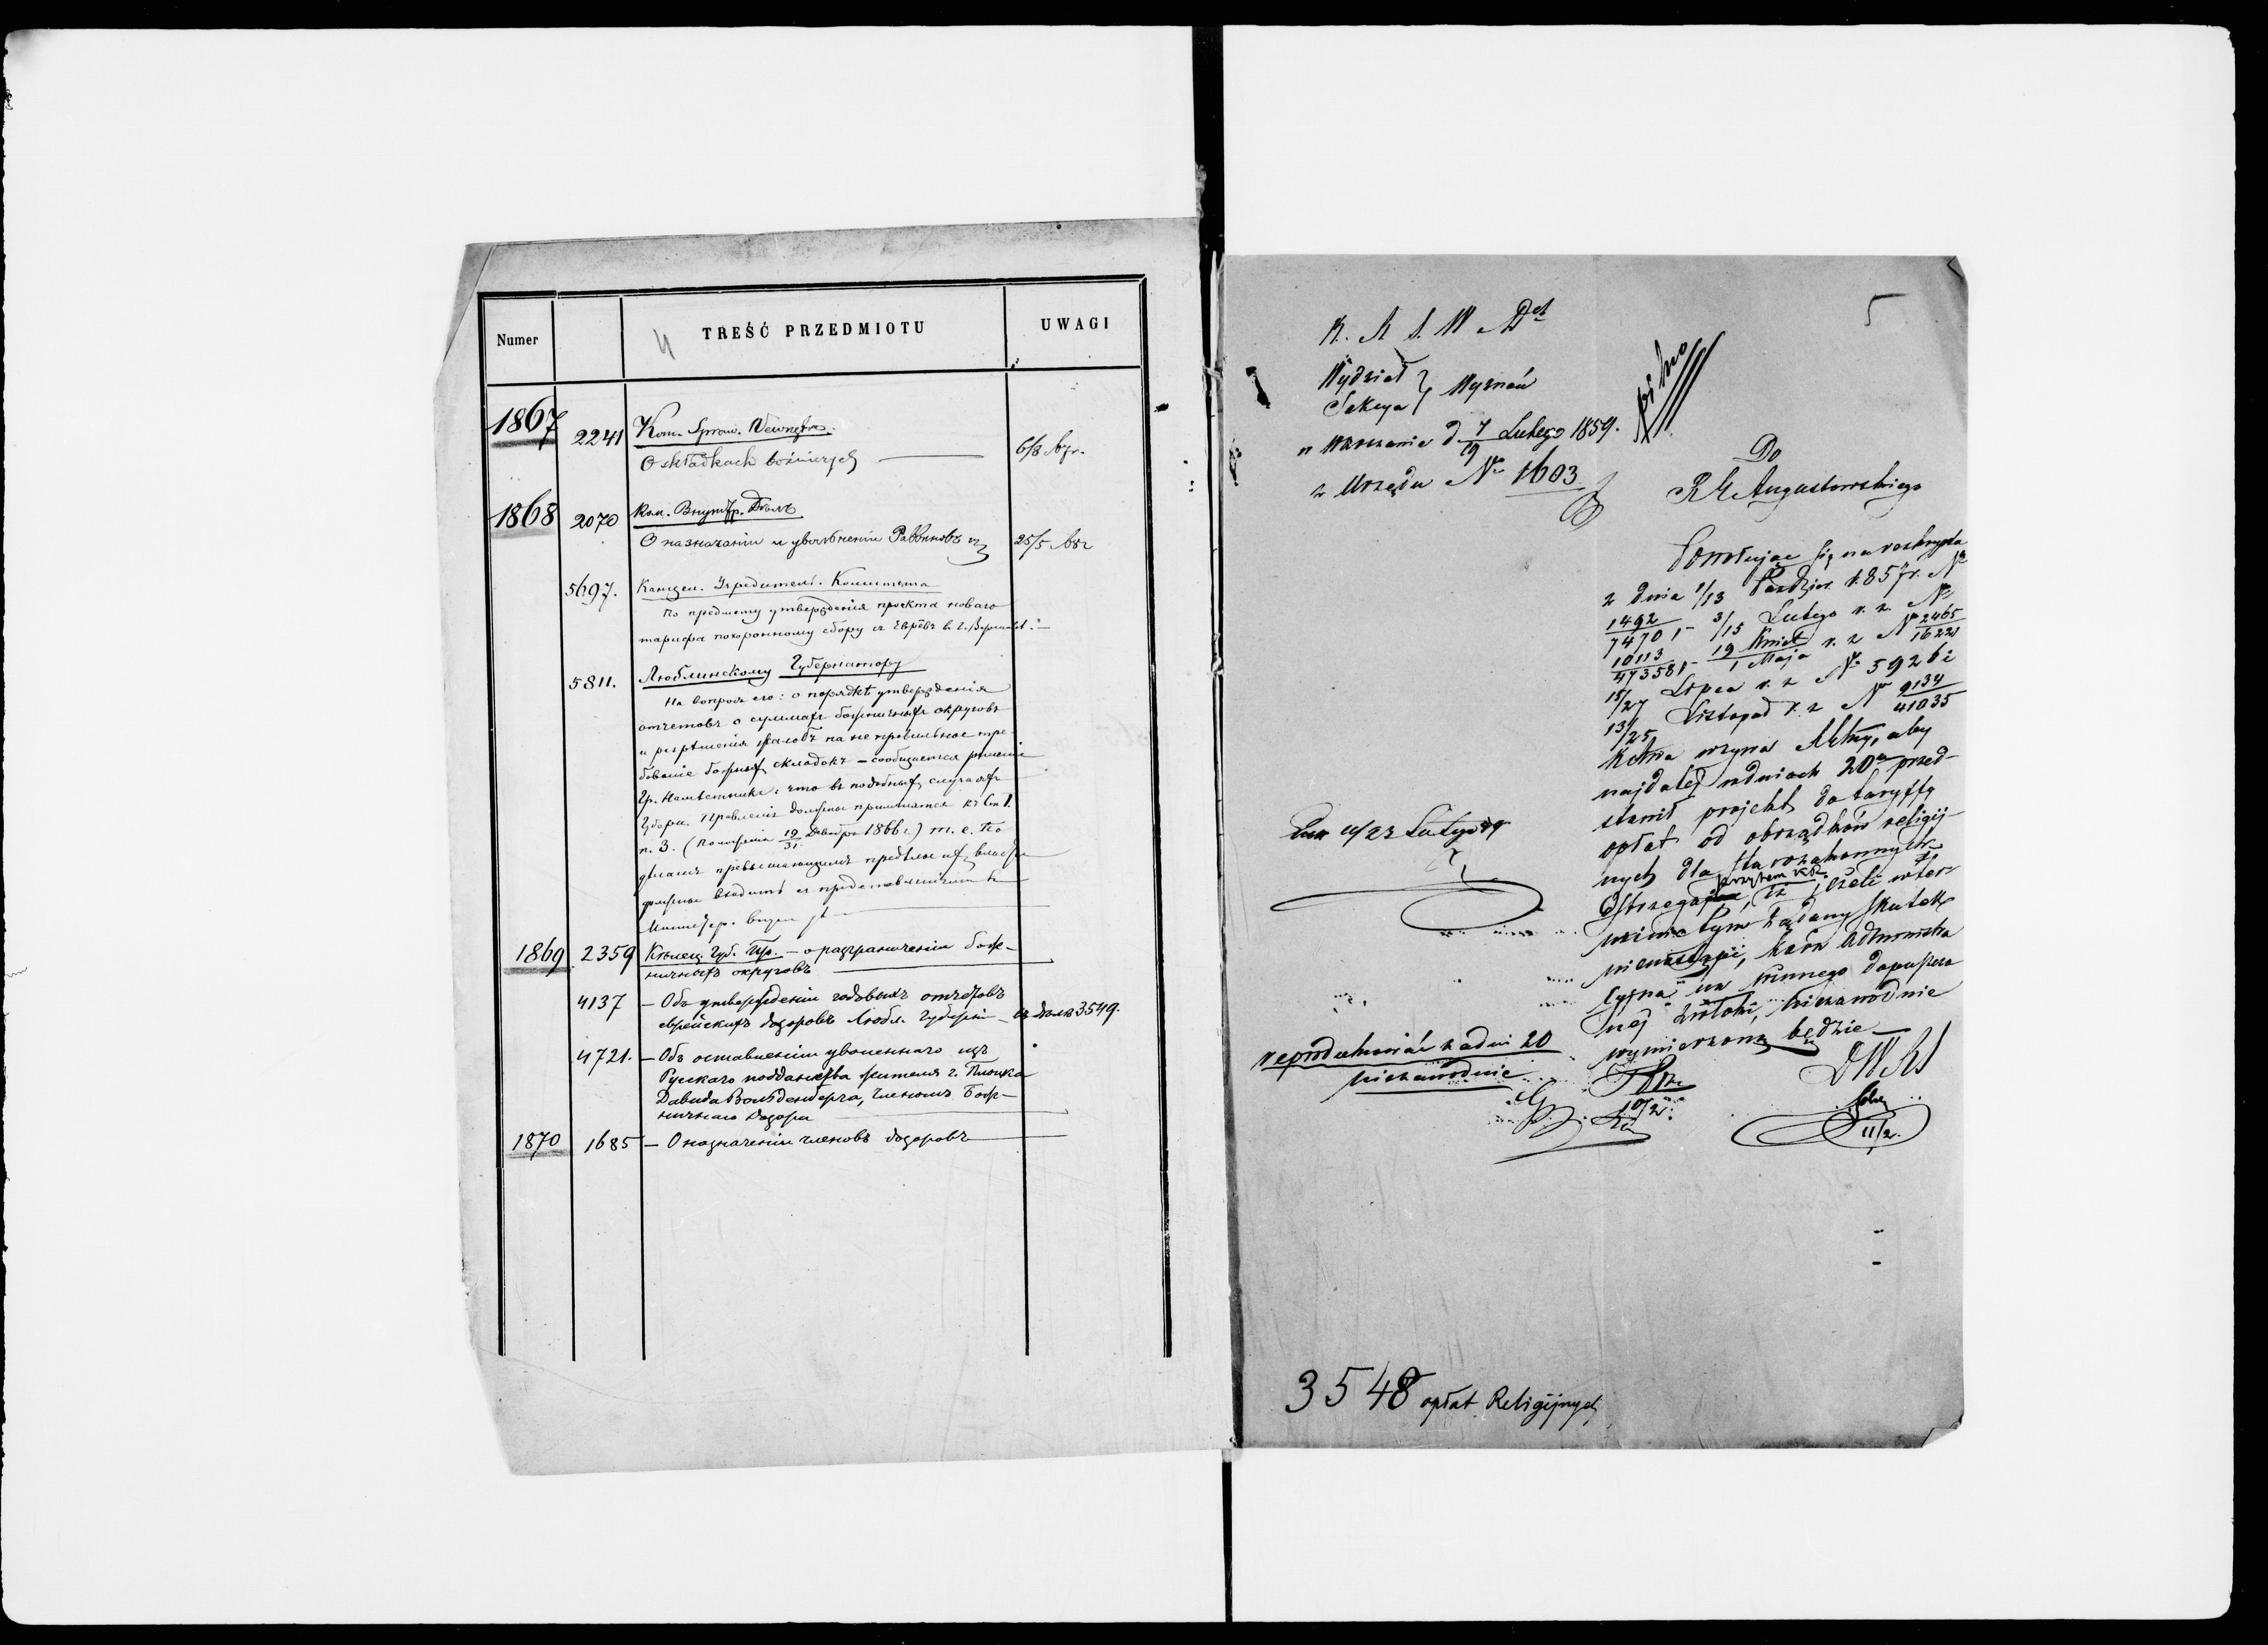 4
Numer
TREŚĆ PRZEDMIOTU
UWAGI
1867
2241
Kom. Spraw. Wewnętrz.
O składkach bożniczych
6/8 67 r.
1868
2070
Ком. Внутр. Дѣлъ
О назначеніи и увольненіи Раввиновъ
25/5 68 г
5697.
Канцел. Учредител. Комитета
По предмету утвержденія проекта новаго
тарифа похоронному сбору съ Евреевъ в г.
5811.
Люблинскому Губернатору
На вопросъ его: о порядкѣ утвержденія
отчетовъ о суммахъ божничныхъ округовъ
и разрѣшенія жалобъ на неправильное тре-
бованіе божн. складокъ – сообщается рѣшеніе
Гр. Намѣстника: что въ подобныхъ случаяхъ
Губерн. Правленія должны примѣнятся къ Ст 1.
п. 3. (Положенія 19/31 Декабря 1866 г.) т. е. По
дѣламъ превышающимъ предѣлы ихъ власти
должны входить съ представленіемъ въ
1869
2359
Кѣлец. Губ. Пр. – о разграниченіи бож-
ничныхъ округовъ
4137
– Объ утвержденіи годовыхъ отчетовъ
еврейскихъ дозоровъ Любл. Губерніи
въ дѣлѣ 3549.
4721.
– Объ оставленіи уволеннаго изъ
Русскаго подданства жителя г. Плоцка
Давида, членомъ Бож-
ничнаго дозора
1870
1685
– О назначеніи членовъ дозоровъ
5
K. R. S. W. i D.
Wydział
Sekcya } Wyznań
w Warszawie d 7/19 Lutego 1859.
z Urzędu No 1603
pilno
Do
R G Augustowskiego
Powołując się na reskrypta
z dnia 1/13 Paździer. 1857 r. No
1492/74701 – 3/15 Lutego r. z. No
10113/47358 – 19 Kwiet/1 Maja r. z No 2465/16221
15/27 Lipca r. z No 5926 i
13/25 Listopad r. z No 9134/41035
wzywa, aby
najdalej w dniach 20 przed-
stawił projekt do taryffy
opłat od obrządków religij-
nych dla starozakonnych
przytem
Ostrzega, iż jeżeli w ter-
minie tym żądany skutek
nie nastąpi, kara Administra
cyjna na winnego dopuszczo
nej zwłoki, niezawodnie
wymierzoną będzie
11/23 Lutego 59
reprodukować za dni 20
niezawodnie
10/2
DWRS
11/2.
3548 opłat Religijnych